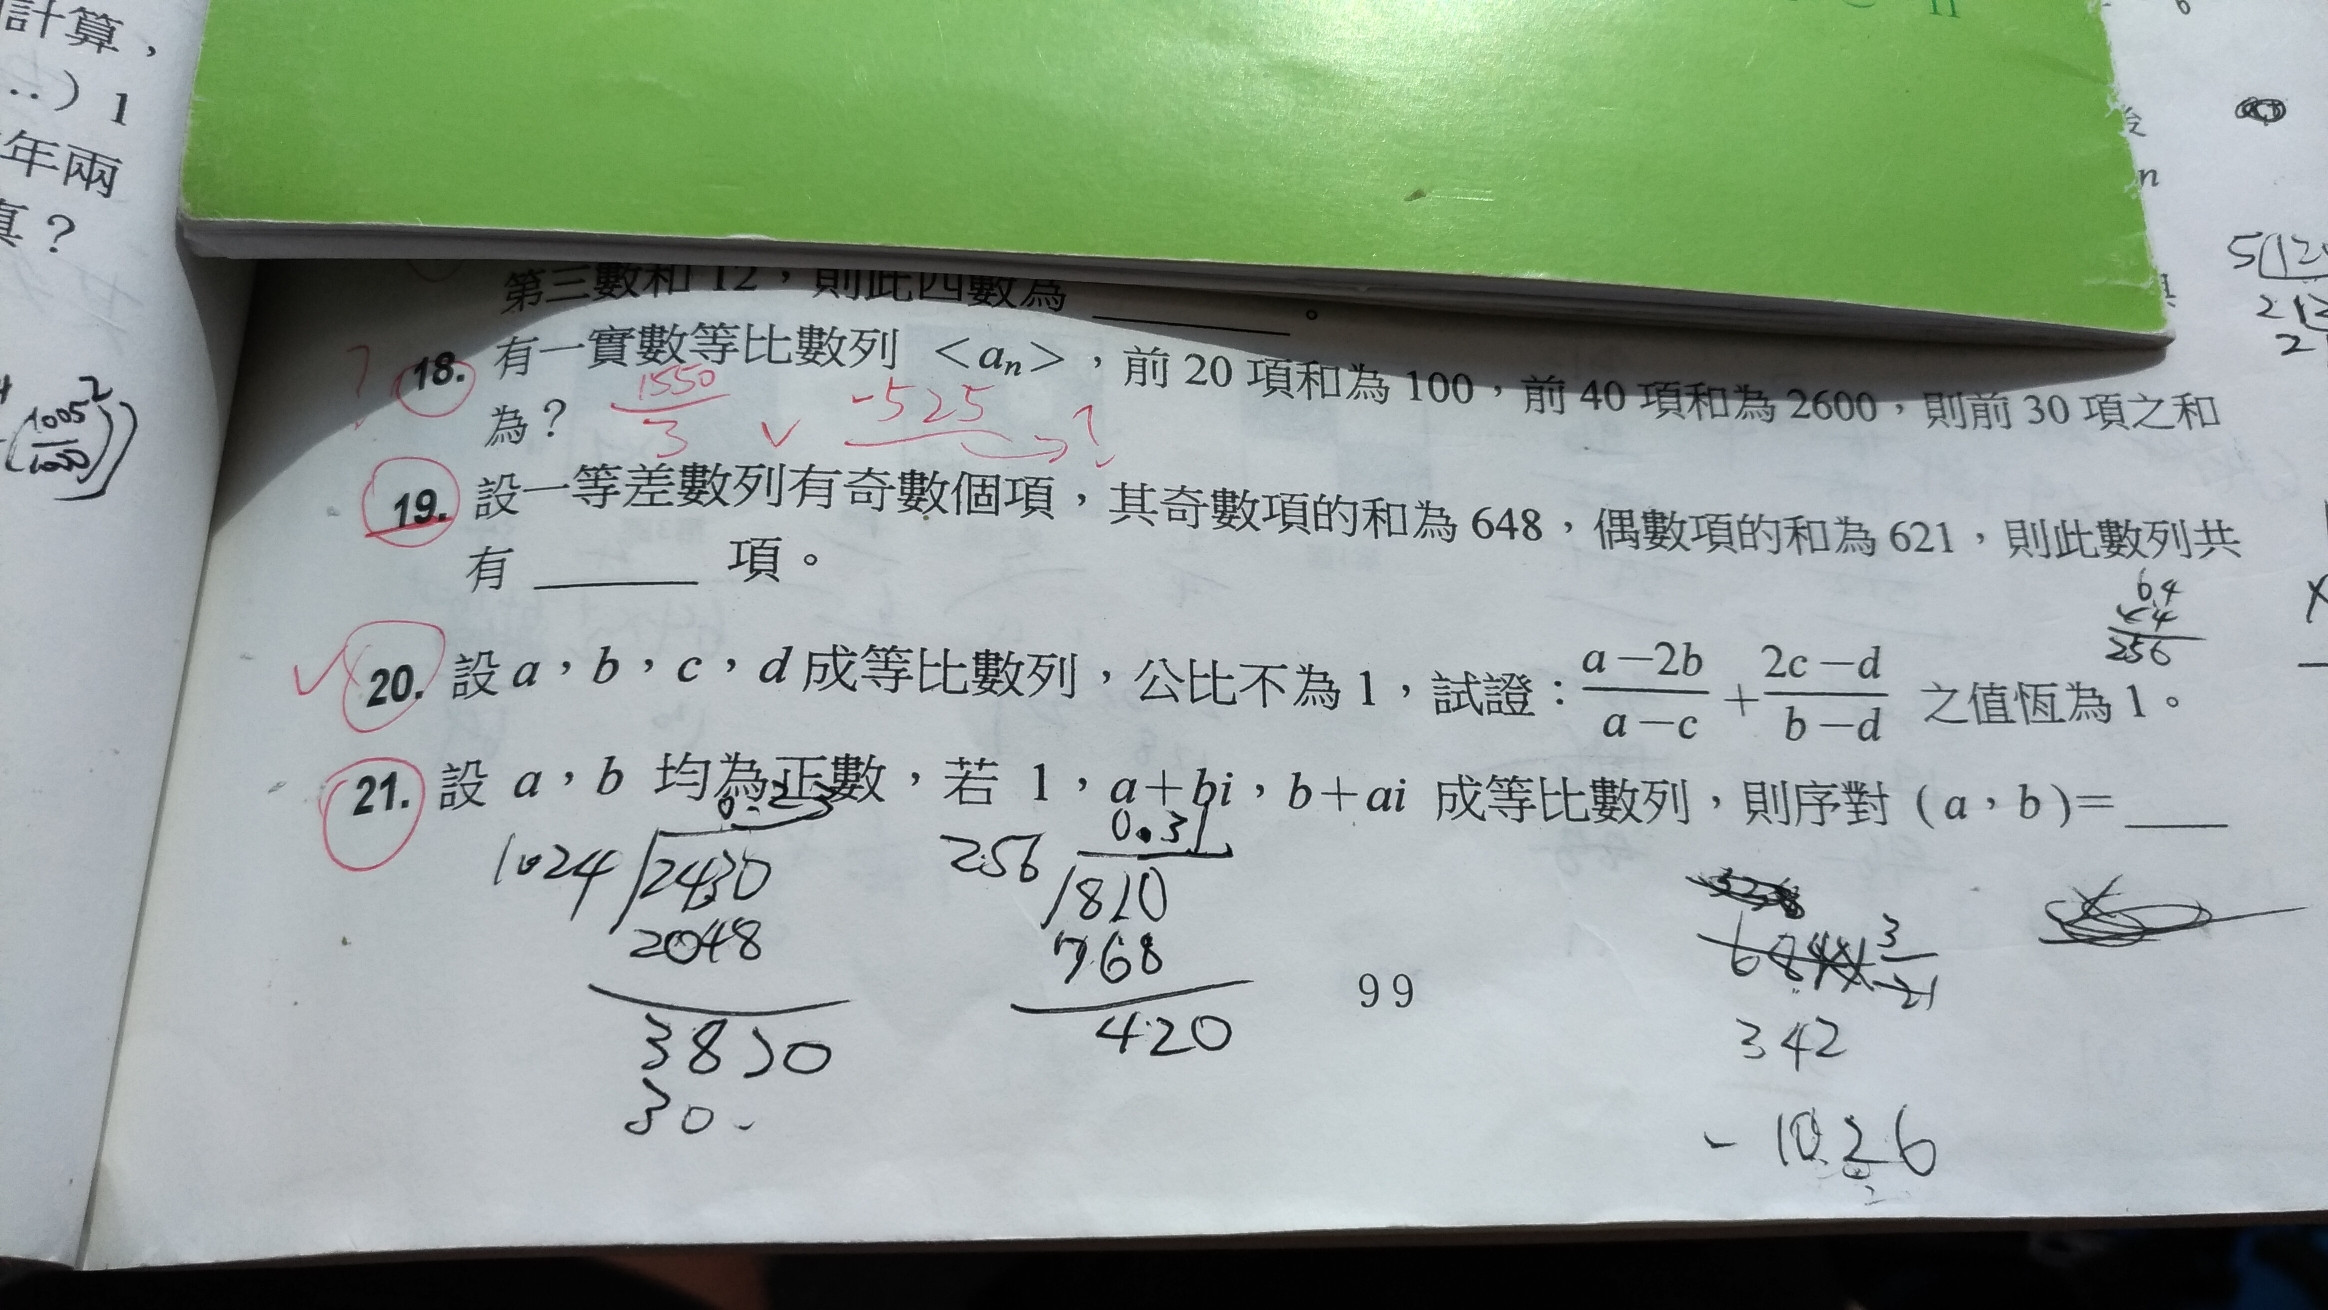 計算，
…）1
年兩
真？
第三數和 12，則此四數為 ＿＿＿。
18. 有一實數等比數列 <aₙ>，前 20 項和為 100，前 40 項和為 2600，則前 30 項之和
為？ 1550/3 ✓ -525 ?
19. 設一等差數列有奇數個項，其奇數項的和為 648，偶數項的和為 621，則此數列共
有 ＿＿＿ 項。
64
×4
256
20. 設 a，b，c，d 成等比數列，公比不為 1，試證：(a－2b)/(a－c)＋(2c－d)/(b－d) 之值恆為 1。
21. 設 a，b 均為正數，若 1，a＋bi，b＋ai 成等比數列，則序對 (a，b)＝＿＿
1024 2430
2048
3820
30
0.31
256 810
768
420
342
-1026
99